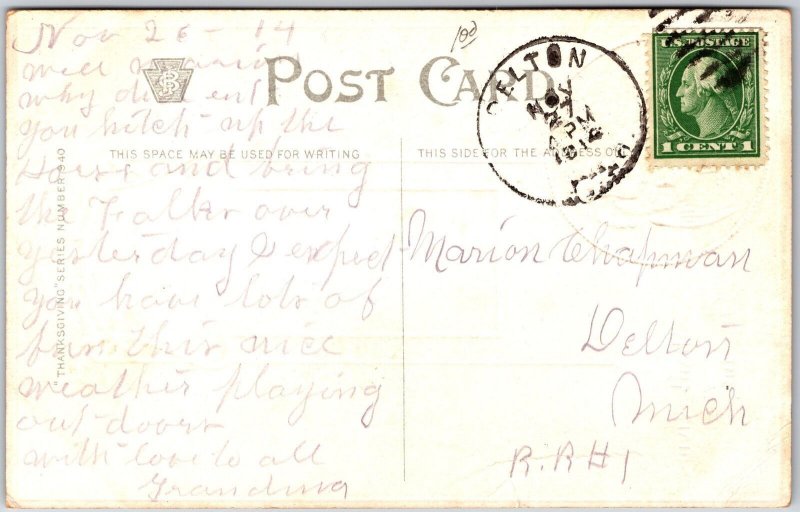 Nov 26 - 14
well Marion
why didn ent
you hitch up the
Horse and bring
the Folks over
yesterday I expect
you have lots of
fun this nice
weather playing
out doors
with love to all
Grandma
POST CARD
THIS SPACE MAY BE USED FOR WRITING
THIS SIDE FOR THE ADDRESS ON
"THANKSGIVING" SERIES NUMBER 940
100
DELTON
NOV
PM
U.S. POSTAGE
1 CENT 1
Marion Chapman
Delton
Mich
R.R #1